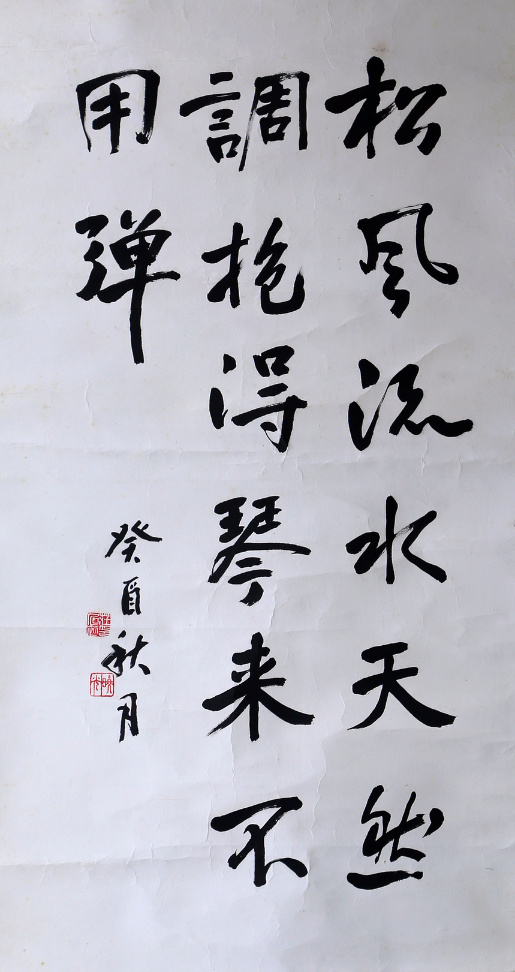 松风流水天然
調抱得琴来不
用弹
癸酉秋月